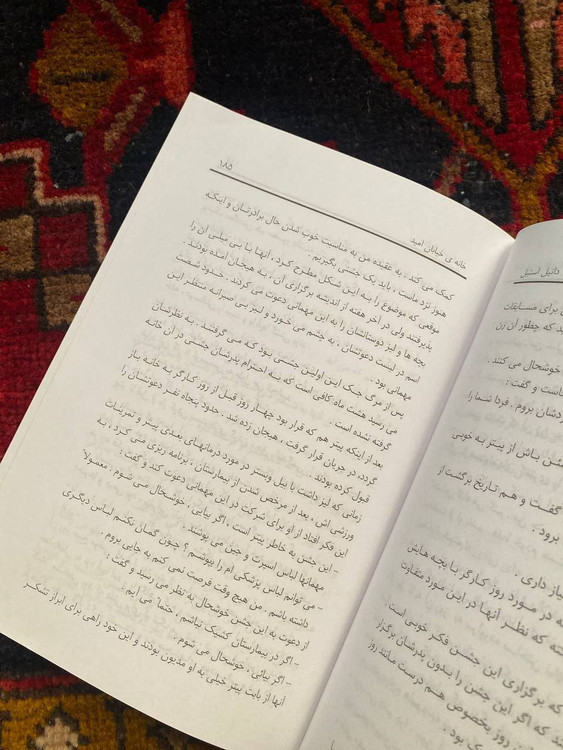 ۱۸۵
خانه ی خیابان امید
کمک می کند . به عقیده من به مناسبت خوب شدن حال برادرتان و اینکه
هنوز نزد ماست ، باید یک جشنی بگیریم .
موقعی که موضوع را به این شکل مطرح کرد ، آنها با بی میلی آن را
پذیرفتند ولی در آخر هفته از اندیشه برگزاری آن ، به هیجان آمده بودند .
بچه ها و لیز دوستانشان را به این مهمانی دعوت می کردند . حدود شصت
اسم در لیست دعوتشان ، به چشم می خورد و لیز بی صبرانه منتظر این
مهمانی بود .
پس از مرگ جک این اولین جشنی بود که می گرفتند . به نظرشان
می رسید هشت ماه کافی است که به احترام پدرشان جشنی در آن خانه
گرفته نشده است .
بعد از اینکه پیتر هم که قرار بود چهار روز قبل از روز کارگر به خانه باز
گردد، در جریان قرار گرفت ، هیجان زده شد . حدود پنجاه نفر دعوتشان را
قبول کرده بودند .
زمانی که لیز داشت با بیل وبستر در مورد درمانهای بعدی پیتر و تمرینات
ورزشی اش ، بعد از مرخص شدن از بیمارستان ، برنامه ریزی می کرد ، به
این فکر افتاد از او برای شرکت در این مهمانی دعوت کند و گفت :
- این جشن به خاطر پیتر است ، اگر بیایی ، خوشحال می شوم . معمولاً
مهمانها لباس اسپرت و جین می پوشند .
- می توانم لباس پزشکی ام را بپوشم ؟ چون گمان نکنم لباس دیگری
داشته باشم . من هیچ وقت فرصت نمی کنم به جایی بروم .
از دعوت به این جشن خوشحال به نظر می رسید و گفت :
- اگر در بیمارستان کشیک نباشم ، حتماً می آیم .
- اگر بیائی ، خوشحال می شوم .
آنها از بابت پیتر خیلی به او مدیون بودند و این خود راهی برای ابراز تشکر
دانیل استیل
برای مسابقات
که چطور آن زن
خوشحال می کنند .
و گفت :
بروم . فردا شما را
باش از پیتر به خوبی
گفت و هم تاریخ برگشت از
برود .
داری .
در مورد روز کارگر با بچه هایش
که نظر آنها در این مورد متفاوت
که برگزاری این جشن فکر خوبی است .
که اگر این جشن را بدون پدرشان برگزار
روز بخصوص هم درست مانند روز
بود .